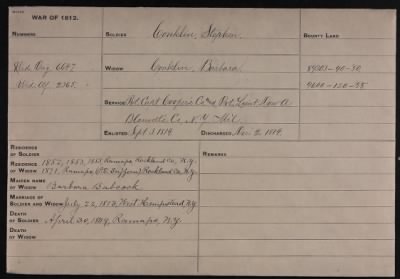 WAR OF 1812.
NUMBERS SOLDIER Conklin, Stephen BOUNTY LAND
Wid. Orig. 6647 WIDOW Conklin, Barbara 89003-40-50
Wid. Ctf. 2365 9600-120-55
SERVICE Pvt. Capt. Cooper's Co. and Pvt. Lieut.
Co. N.Y. Mil.
ENLISTED Sept 3, 1814 DISCHARGED Nov. 2, 1814.
RESIDENCE OF SOLDIER
REMARKS
RESIDENCE OF WIDOW 1852, 1853, 1855, Ramapo, Rockland Co., N.Y.
1871, Ramapo (P.O. Suffern) Rockland Co., N.Y.
MAIDEN NAME OF WIDOW Barbara Babcock
MARRIAGE OF SOLDIER AND WIDOW July 22, 1812, West Hempstead, N.Y.
DEATH OF SOLDIER April 30, 1849, Ramapo, N.Y.
DEATH OF WIDOW